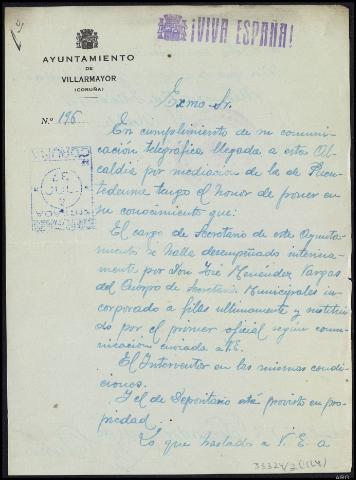 ¡VIVA ESPAÑA!
AYUNTAMIENTO
DE
VILLARMAYOR
(CORUÑA)
N.º 196
Exmo. Sr.
En cumplimiento de su comuni-
cación telegráfica llegada a esta Al-
caldía por mediación de la de Puen-
tedeume tengo el honor de poner en
su conocimiento que:
El cargo de Secretario de este Ayunta-
miento se halla desempeñado interina-
mente por Don José Menéndez Vargas
del Cuerpo de Secretarios Municipales in-
corporado a filas ultimamente y sustitui-
do por el primer oficial según comu-
nicación enviada a V.E.
El Interventor en las mismas condi-
ciones.
Y el de Depositario está provisto en pro-
piedad.
Lo que traslado a V. E. a